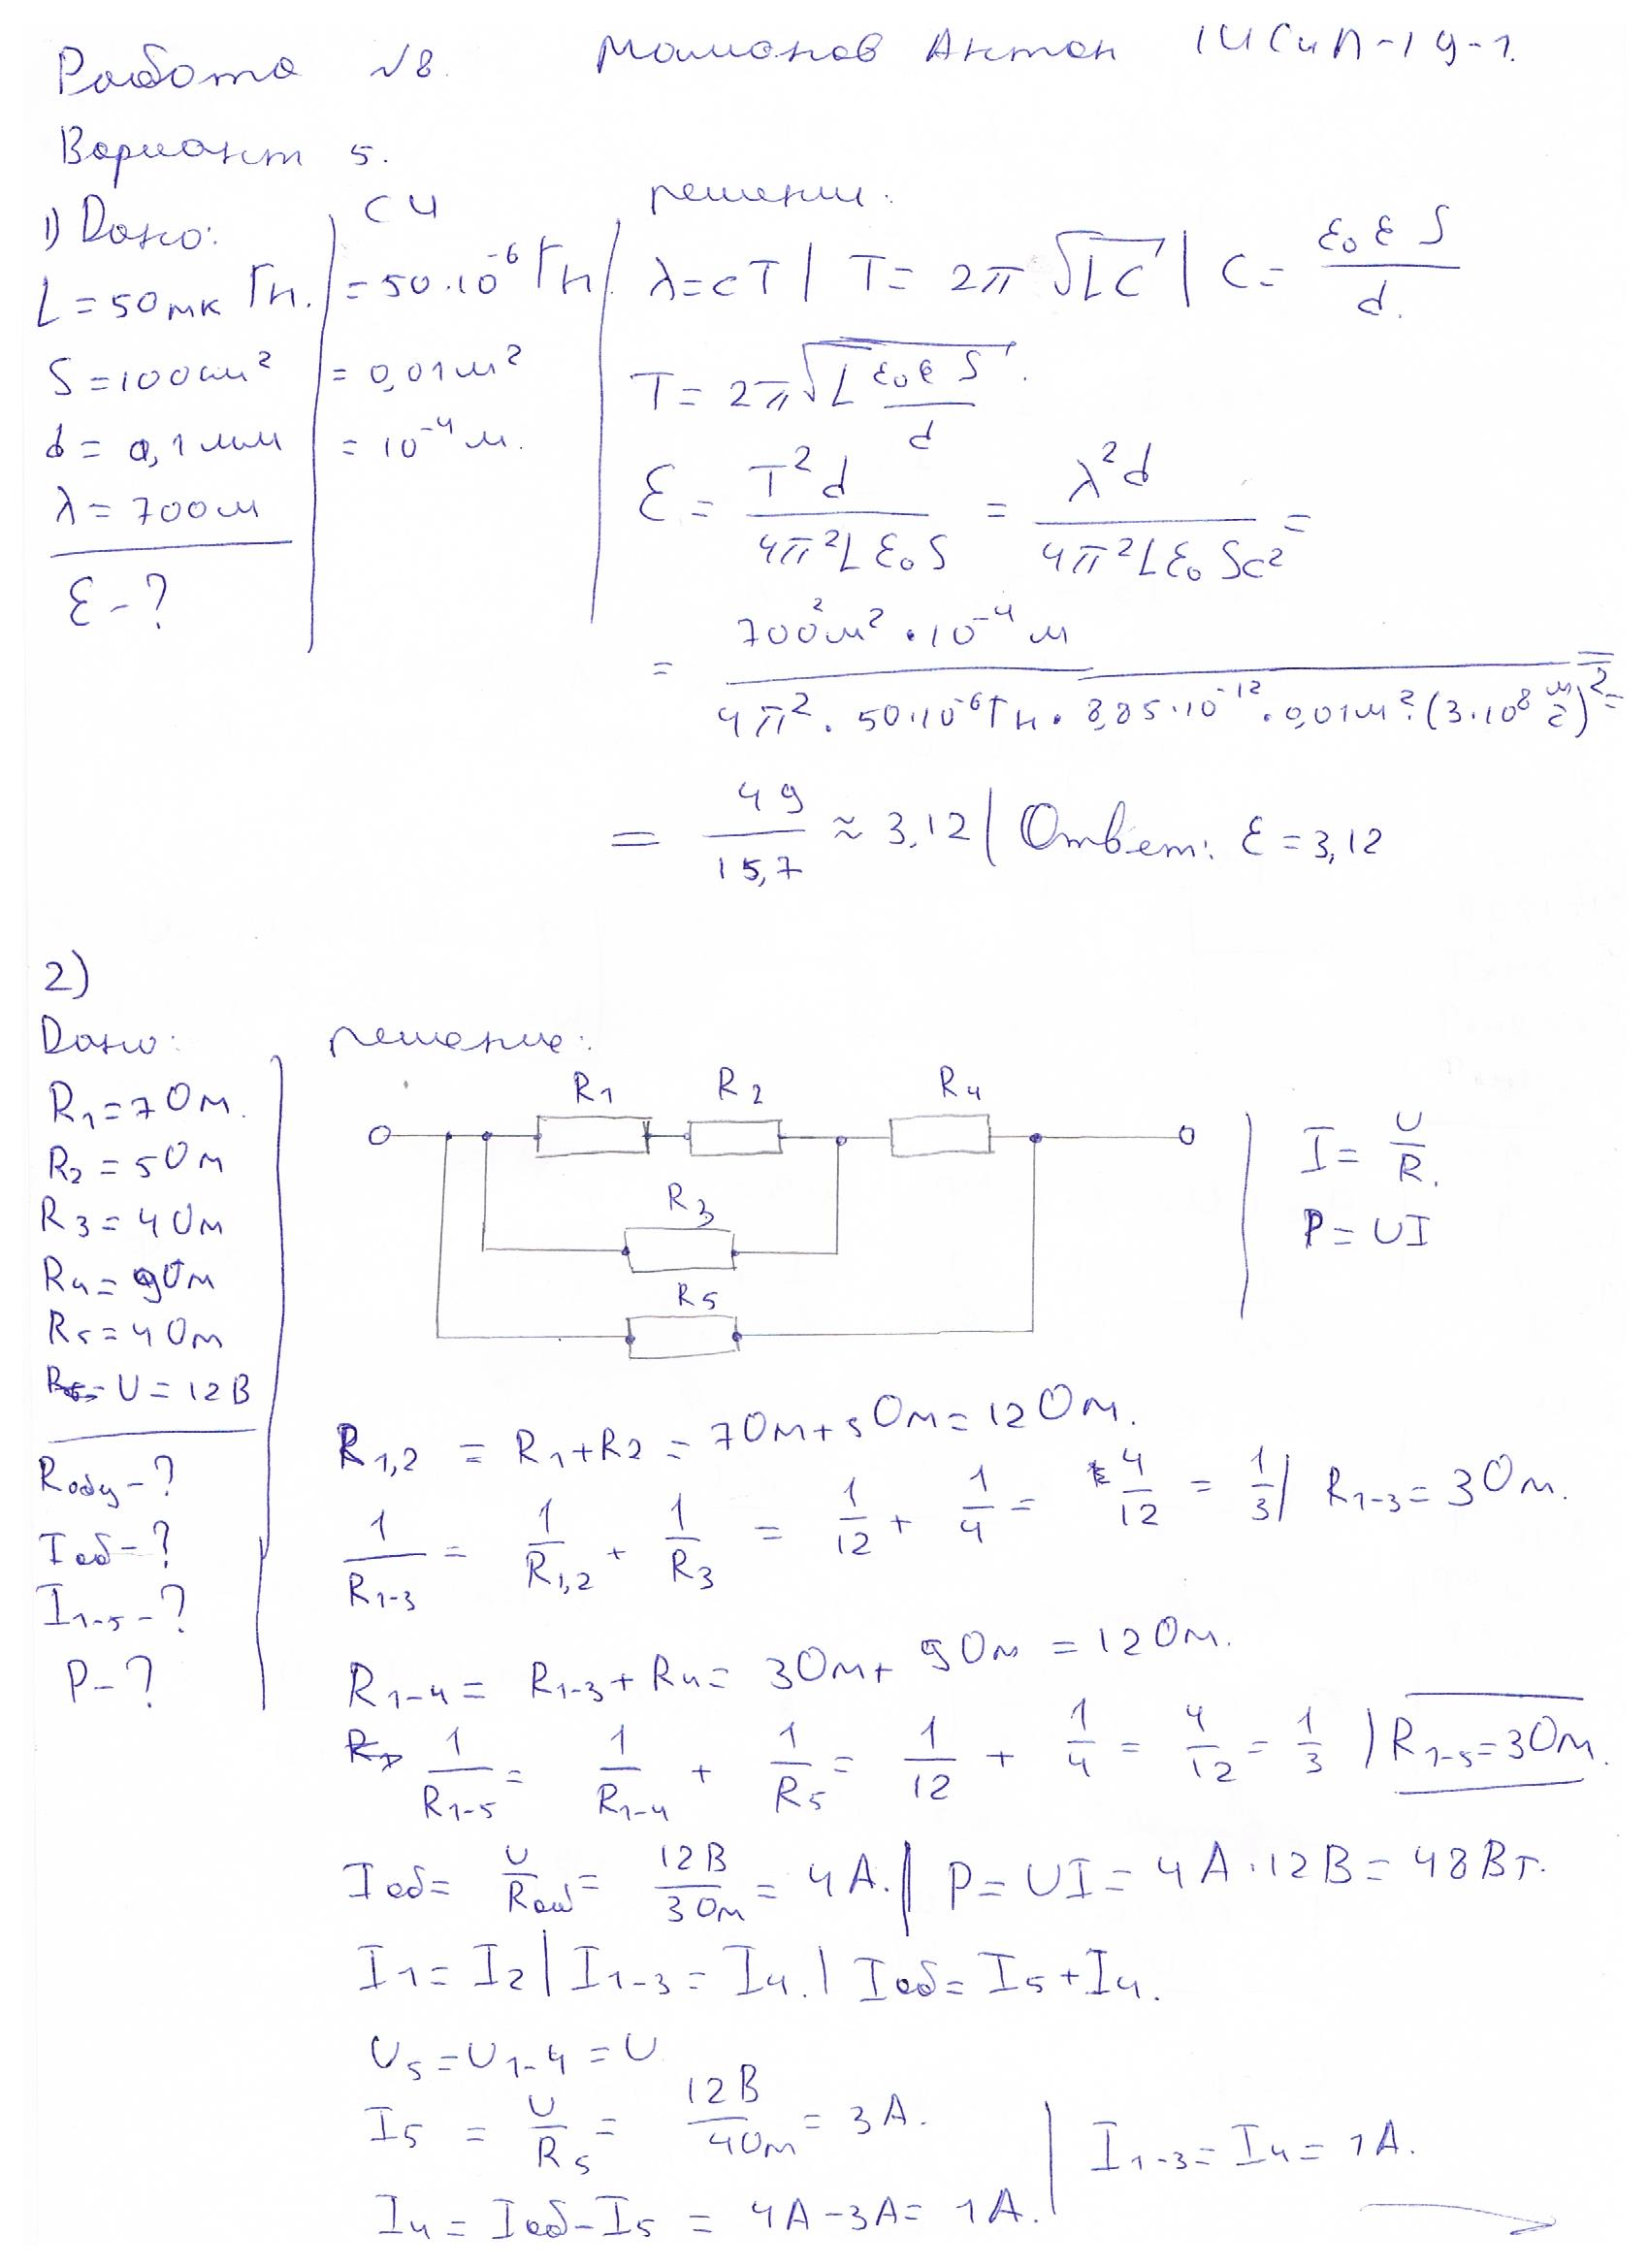 Работа №8. Мамонов Антон 1ИСиП-19-1.
Вариант 5.
1) Дано: СИ решение:
L = 50мк Гн. = 50·10⁻⁶ Гн λ = cT | T = 2π √LC | C = ε₀ ε S / d.
S = 100см² = 0,01м² T = 2π√(L ε₀ε S / d).
d = 0,1мм = 10⁻⁴ м.
λ = 700м ε = T²d / 4π²Lε₀S = λ²d / 4π²Lε₀Sc² =
ε - ?
= 700²м² · 10⁻⁴ м / 4π² · 50·10⁻⁶Гн · 8,85·10⁻¹² · 0,01м² · (3·10⁸ м/с)² =
= 49 / 15,7 ≈ 3,12 | Ответ: ε = 3,12
2)
Дано: решение:
R₁ = 7 Ом.
R₂ = 5 Ом
R₃ = 4 Ом
R₄ = 9 Ом
R₅ = 4 Ом
U = 12В
Rобщ - ?
Iоб - ?
I₁₋₅ - ?
P - ?
R₁ R₂ R₄
R₃
R₅
I = U / R.
P = UI
R₁,₂ = R₁ + R₂ = 7 Ом + 5 Ом = 12 Ом.
1 / R₁₋₃ = 1 / R₁,₂ + 1 / R₃ = 1/12 + 1/4 = 4/12 = 1/3 | R₁₋₃ = 3 Ом.
R₁₋₄ = R₁₋₃ + R₄ = 3 Ом + 9 Ом = 12 Ом.
1 / R₁₋₅ = 1 / R₁₋₄ + 1 / R₅ = 1/12 + 1/4 = 4/12 = 1/3 | R₁₋₅ = 3 Ом.
Iоб = U / Rоб = 12В / 3 Ом = 4 А. | P = UI = 4 А · 12В = 48 Вт.
I₁ = I₂ | I₁₋₃ = I₄. | Iоб = I₅ + I₄.
U₅ = U₁₋₄ = U
I₅ = U / R₅ = 12В / 4 Ом = 3 А.
I₄ = Iоб - I₅ = 4А - 3А = 1А. | I₁₋₃ = I₄ = 1А.